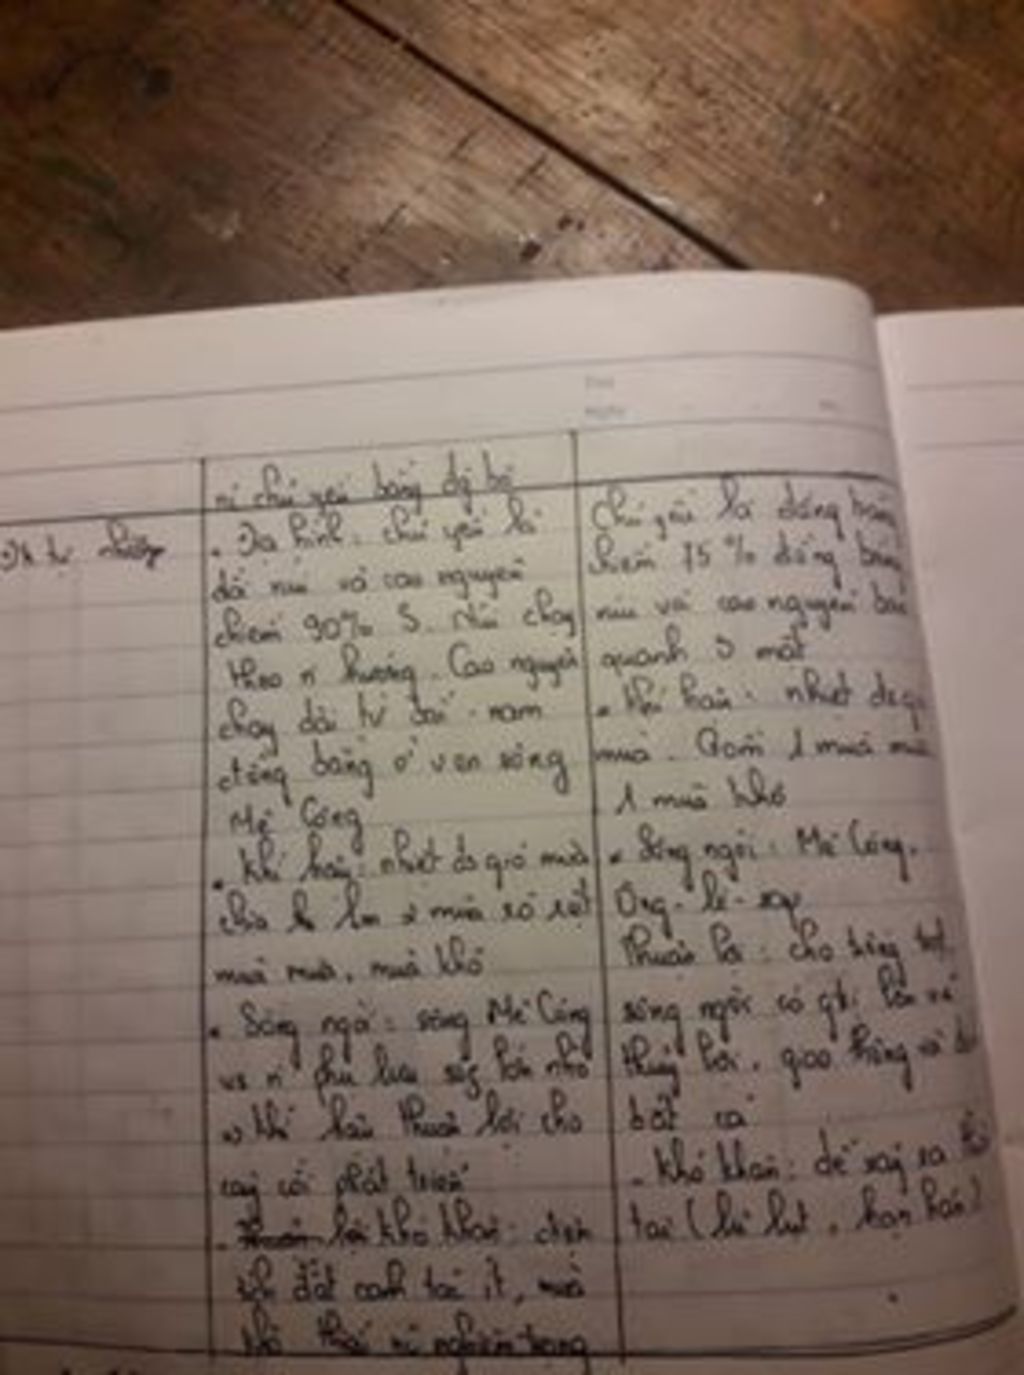 chủ yếu bằng đg bộ
nhiên
. Địa hình: chủ yếu là
đồi núi và cao nguyên
chiếm 90% S. Núi chạy
theo n hướng. Cao nguyên
chạy dài từ bắc - nam
đồng bằng ở ven sông
Mê Công
. Khí hậu: nhiệt đới gió mùa
chia 2 mùa rõ rệt
mùa mưa, mùa khô
. Sông ngòi: sông Mê Công
vs n phụ lưu sông lớn nhỏ
Khí hậu thuận lợi cho
cây cối phát triển
- khó khăn: diện
tích đất canh tác ít, mùa
khô nghiêm trọng
Chủ yếu là đồng bằng
chiếm 75% đồng bằng
núi và cao nguyên bao
quanh 3 mặt
. Khí hậu: nhiệt đới gió
mùa. Gồm 1 mùa mưa
1 mùa khô
. Sông ngòi: Mê Công.
thuận lợi: cho trồng trọt.
sông ngòi có gtrị lớn về
thuỷ lợi, giao thông và
bắt cá
- khó khăn: dễ xảy ra
tai (lũ lụt, hạn hán)